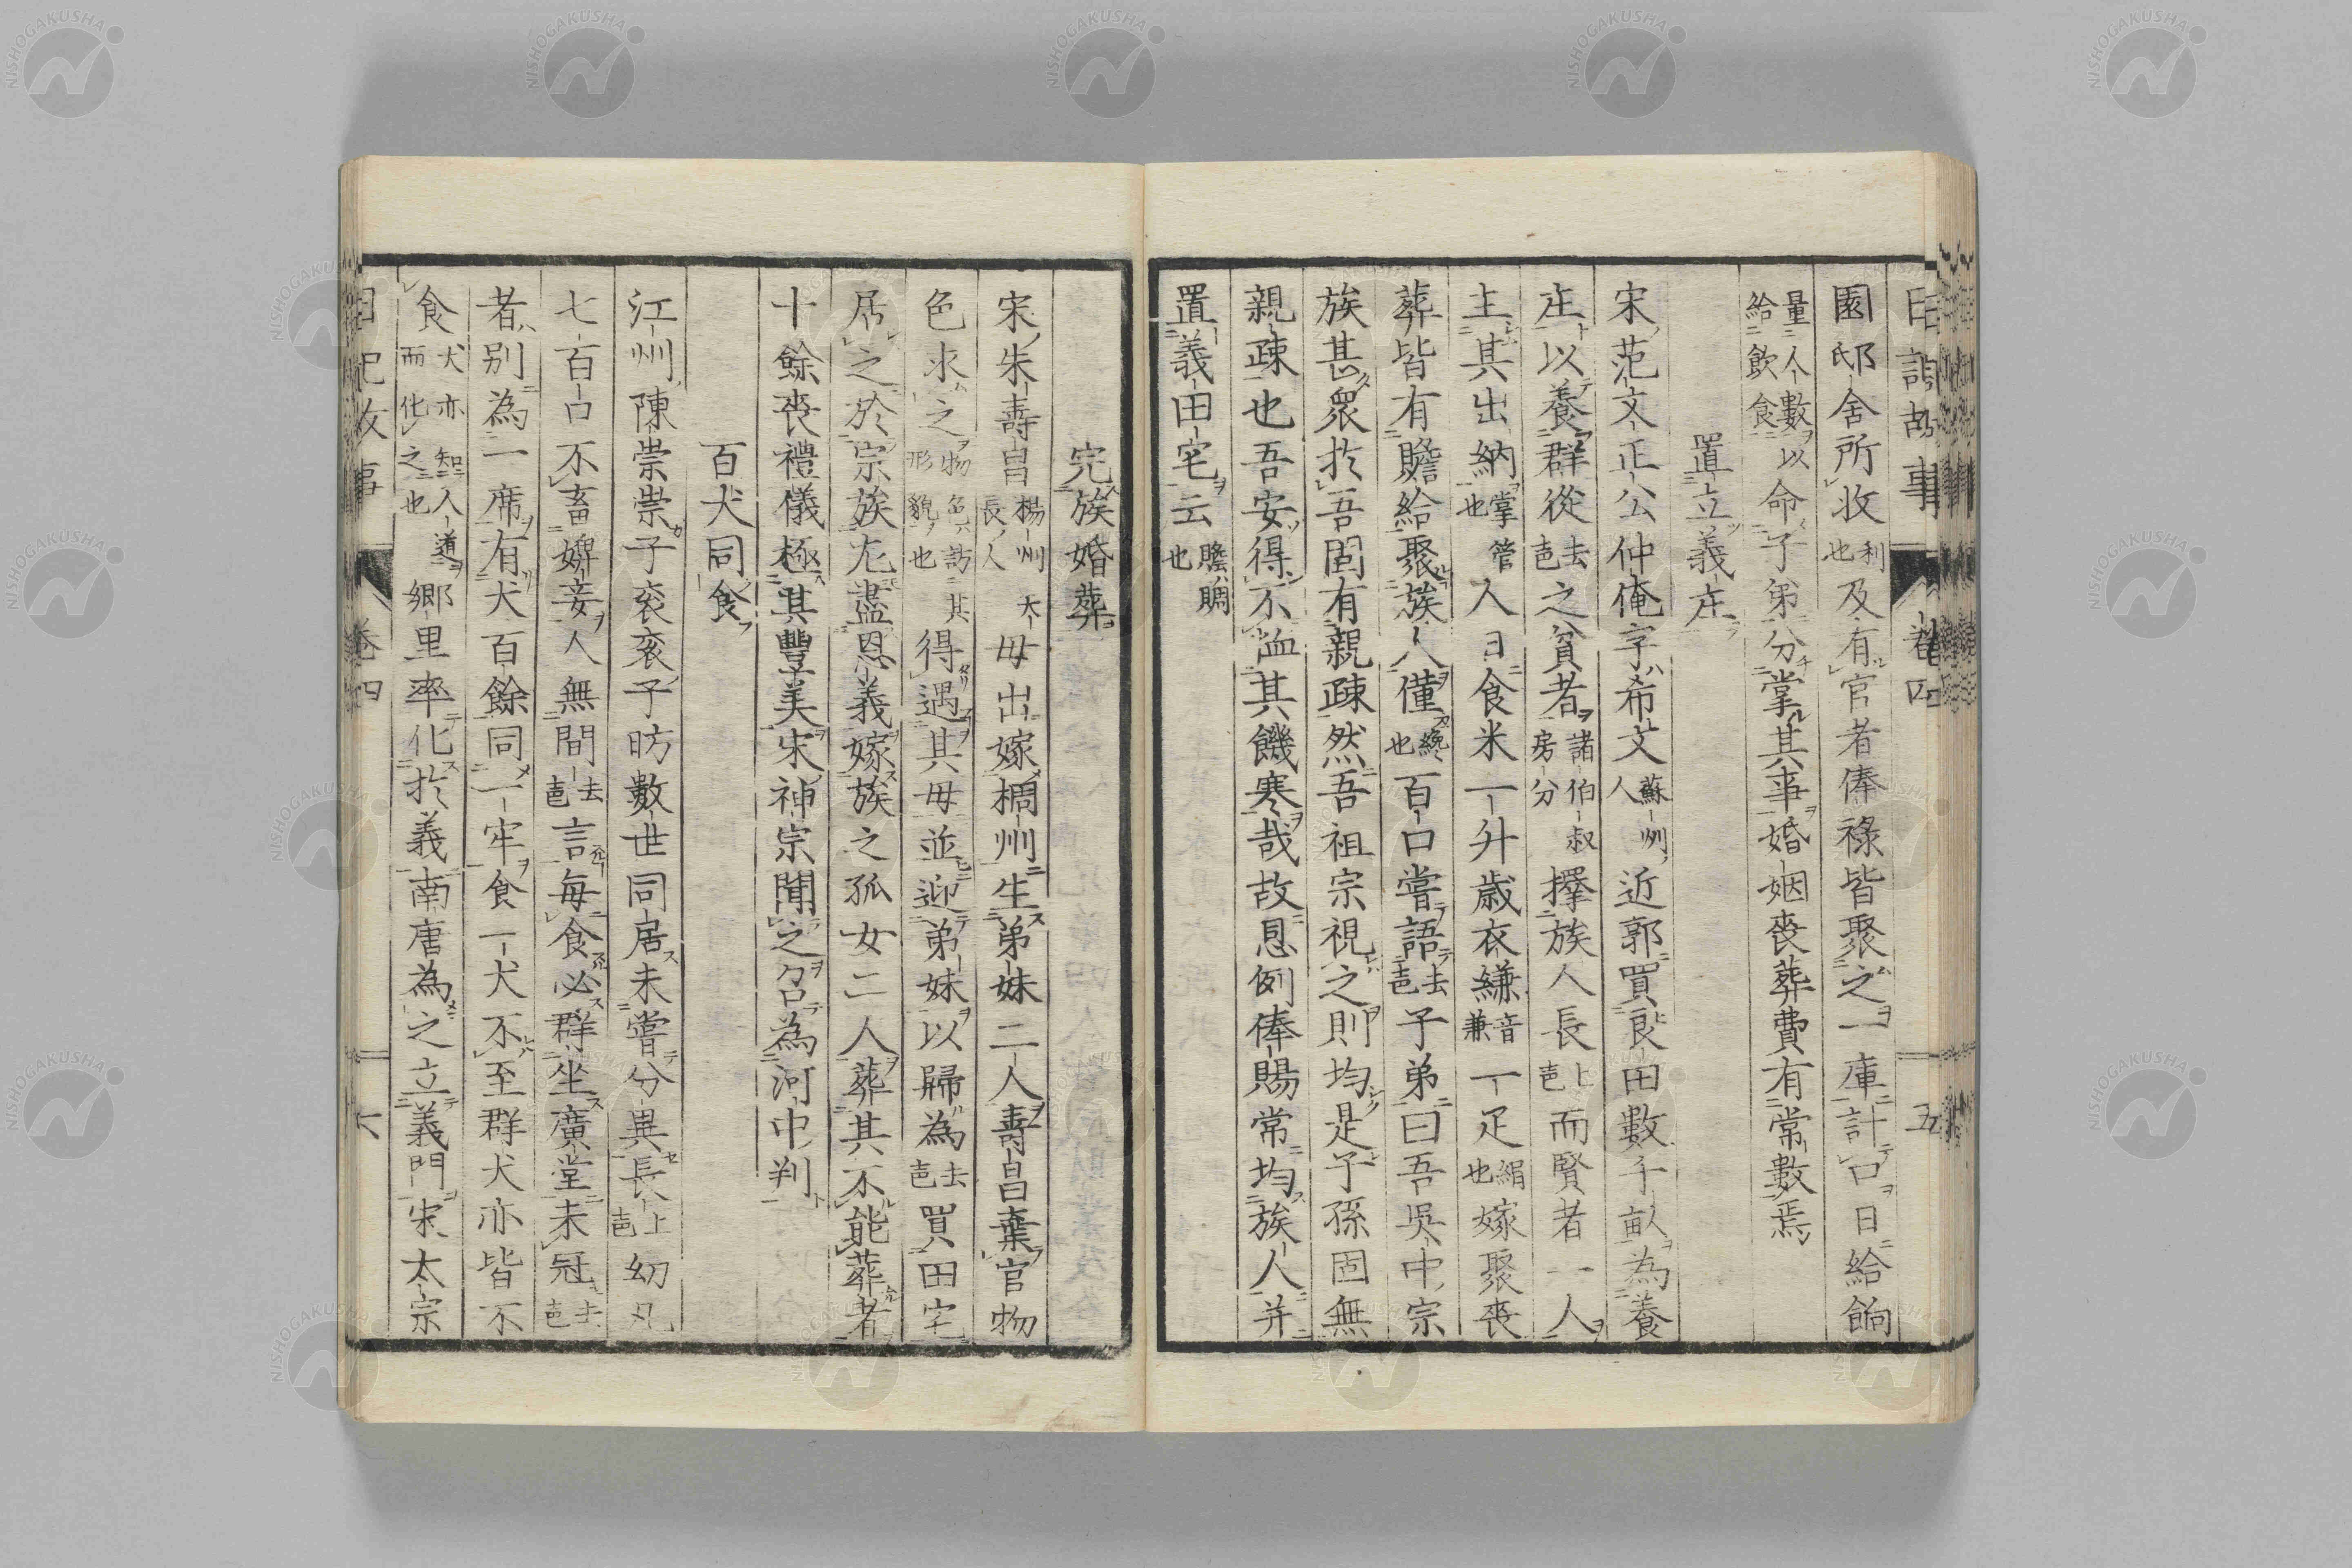 日記故事 卷四 五
園邸舍所收利也及有官者俸祿皆聚之一庫計口日給餉
量人數以給飲食命子弟分掌其事婚姻喪葬費有常數焉
置立義庄
宋范文正公仲俺字希文蘇州人近郭買良田數千畝為養
庄以養群從去声之貧者諸伯叔房分擇族人長上声而賢者一人
主其出納掌管也人日食米一升歲衣縑音兼一疋絹也嫁聚喪
葬皆有贍給聚族人僅纔也百口嘗語去声子弟曰吾吳中宗
族甚衆於吾固有親疎然吾祖宗視之則均是子孫固無
親疎也吾安得不恤其饑寒哉故恩例俸賜常均族人并
置義田宅云贍賙也
完族婚葬
宋朱壽昌楊州天長人母出嫁棡州生弟妹二人壽昌棄官物
色求之物色訪其形貌也得遇其母並迎弟妹以歸為去声買田宅
居之於宗族尤盡恩義嫁族之孤女二人葬其不能葬者
十餘喪禮儀極其豐美宋神宗聞之召為河中判
百犬同食
江州陳崇崇子衮衮子昉數世同居未嘗分異長上声幼凡
七百口不畜婢妾人無間去声言每食必群坐廣堂未冠去声
者別為一席有犬百餘同一牢食一犬不至群犬亦皆不
食犬亦知人道而化之也鄉里率化於義南唐為之立義門宋太宗
日記故事 卷四 六